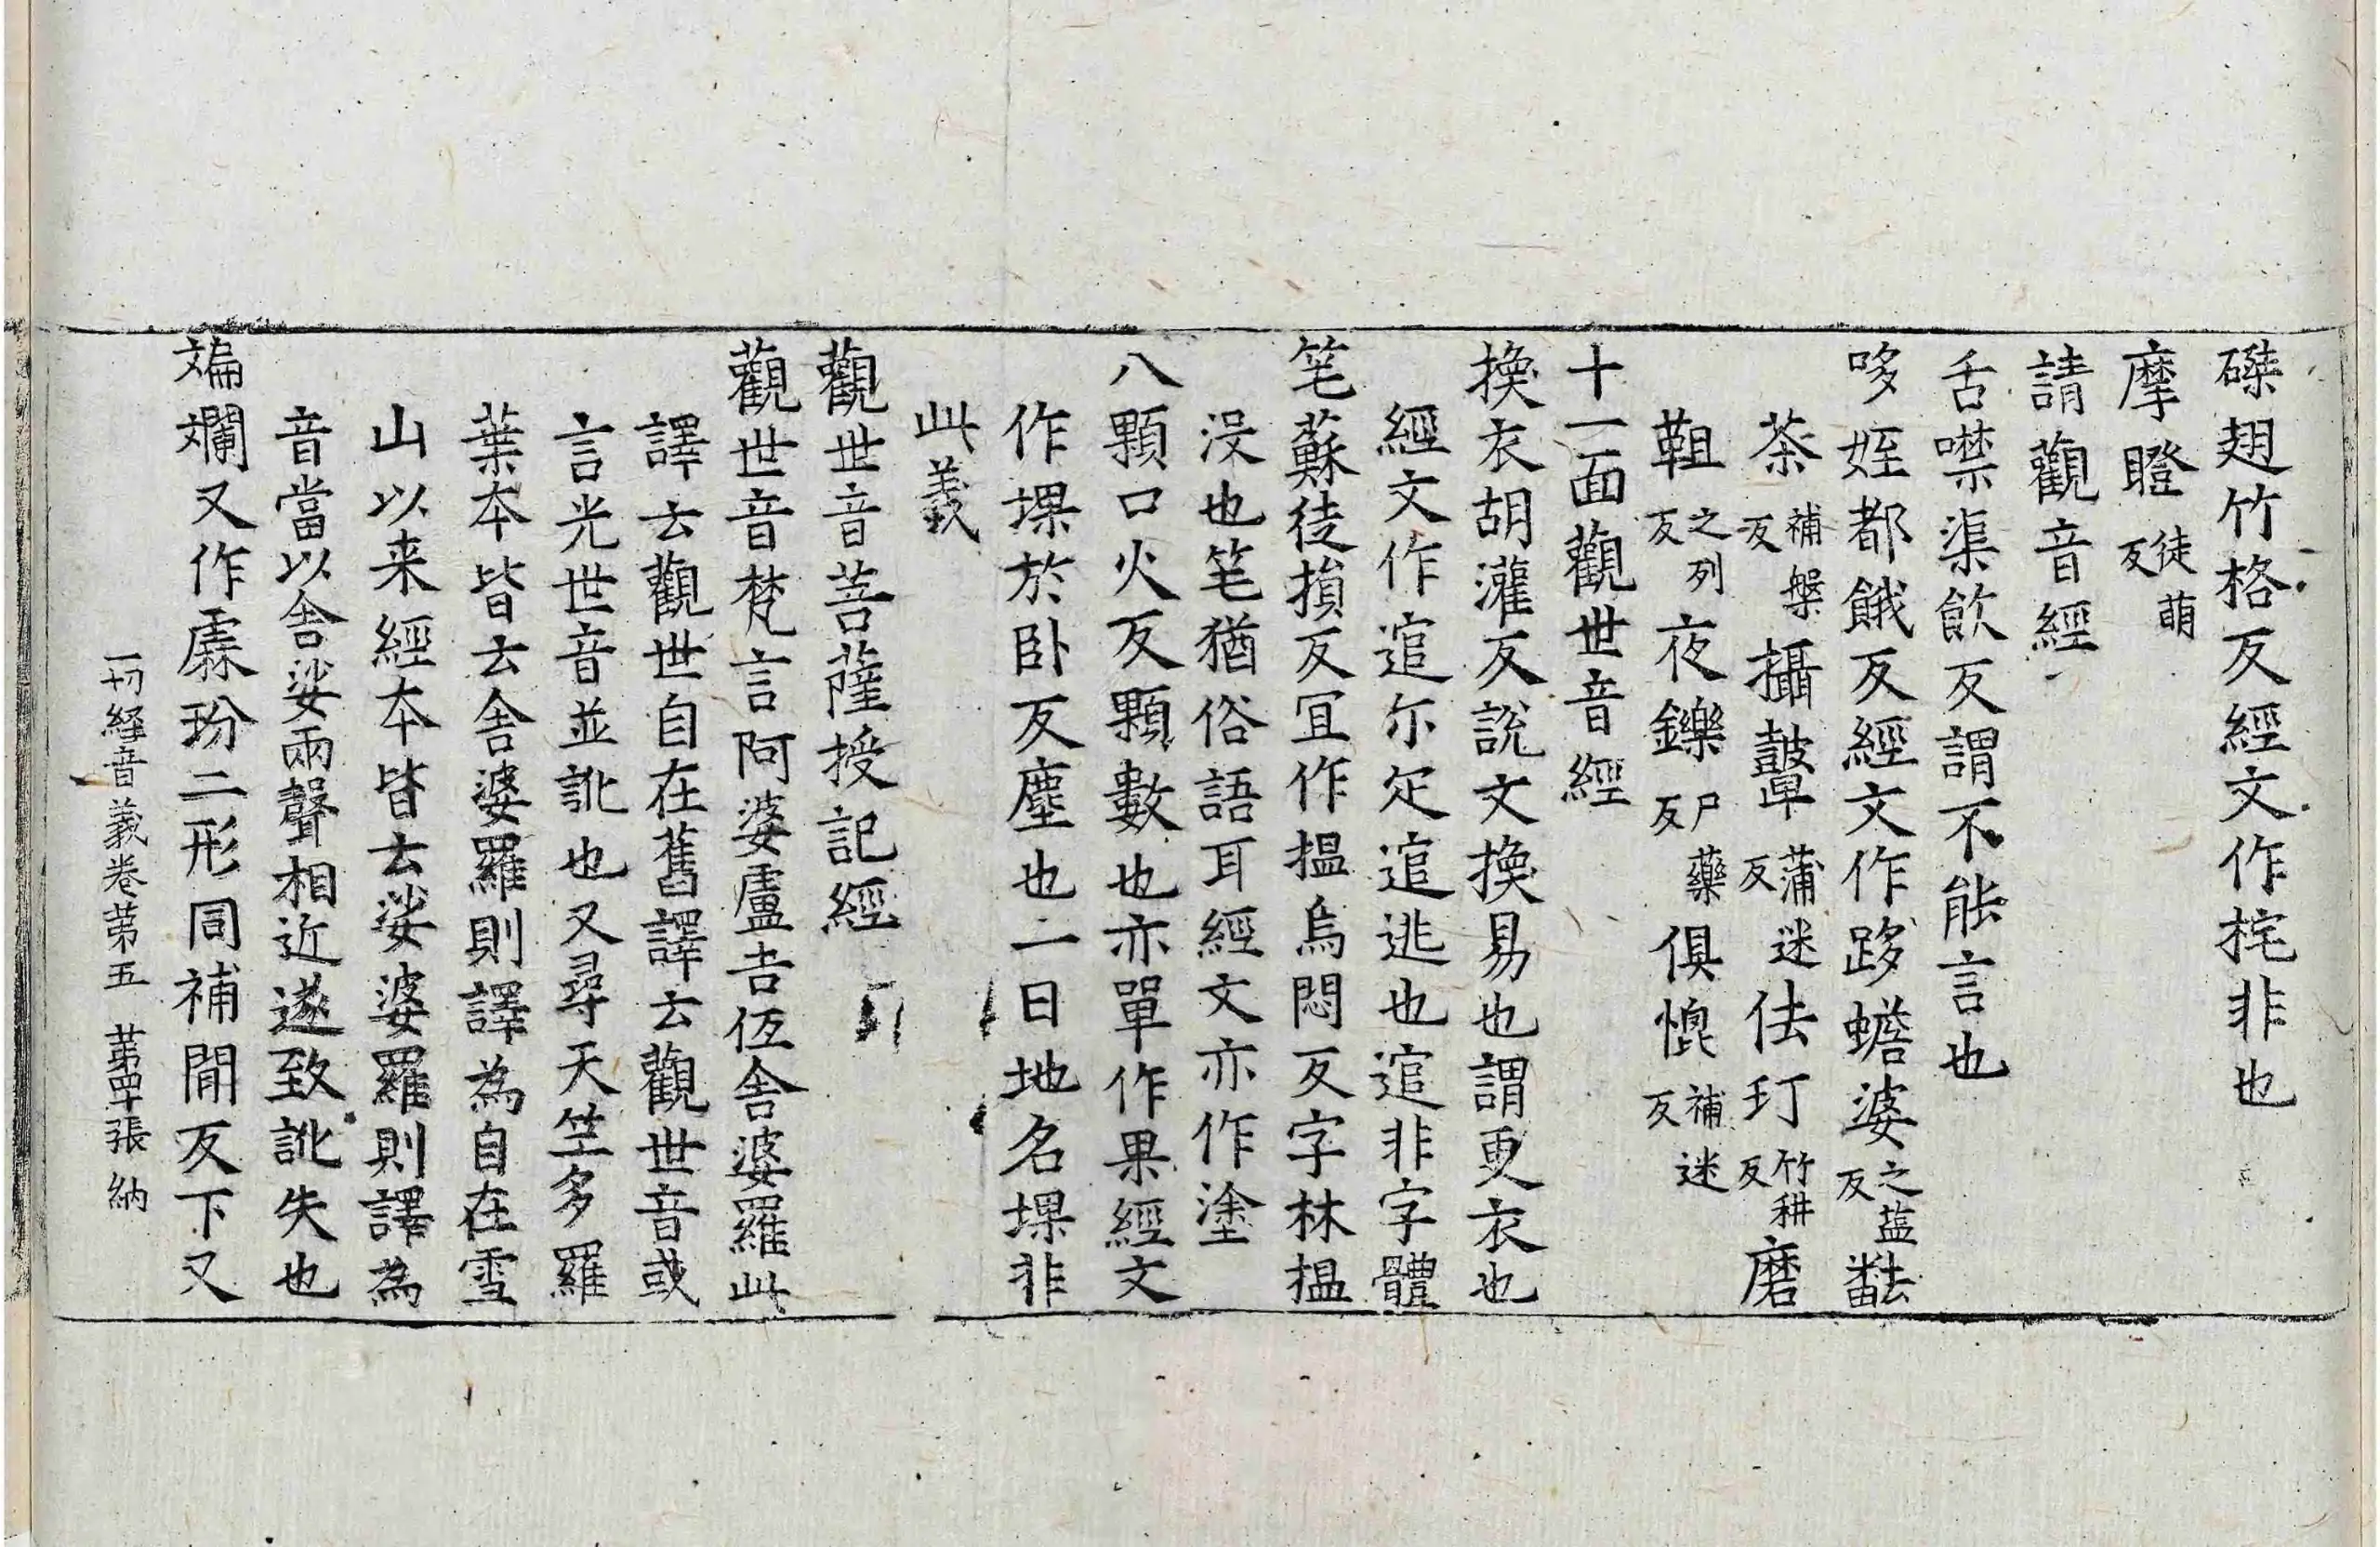 磔翅竹格反經文作挓非也
摩瞪徒萌反
請觀音經
舌噤渠飲反謂不能言也
哆姪都餓反經文作跢蟾婆之葢反
茶補槃反攝鼙蒲迷反佉玎竹耕反磨
靻之列反夜鑠尸藥反俱㡙補迷反
十一面觀世音經
換衣胡灌反說文換易也謂更衣也
經文作逭尓疋逭逃也逭非字體
笔蘇徒損反冝作揾烏悶反字林揾
沒也笔猶俗語耳經文亦作塗
八顆口火反顆數也亦單作果經文
作堁於卧反塵也二曰地名堁非
此義
觀世音菩薩授記經
觀世音梵言阿婆盧吉伍舍婆羅此
譯云觀世自在舊譯云觀世音或
言光世音並訛也又尋天竺多羅
葉本皆云舍婆羅則譯為自在雪
山以来經本皆云娑婆羅則譯為
音當以舍娑兩聲相近遂致訛失也
斒斕又作虨玢二形同補閒反下又
一切經音義卷第五 第四十張 納